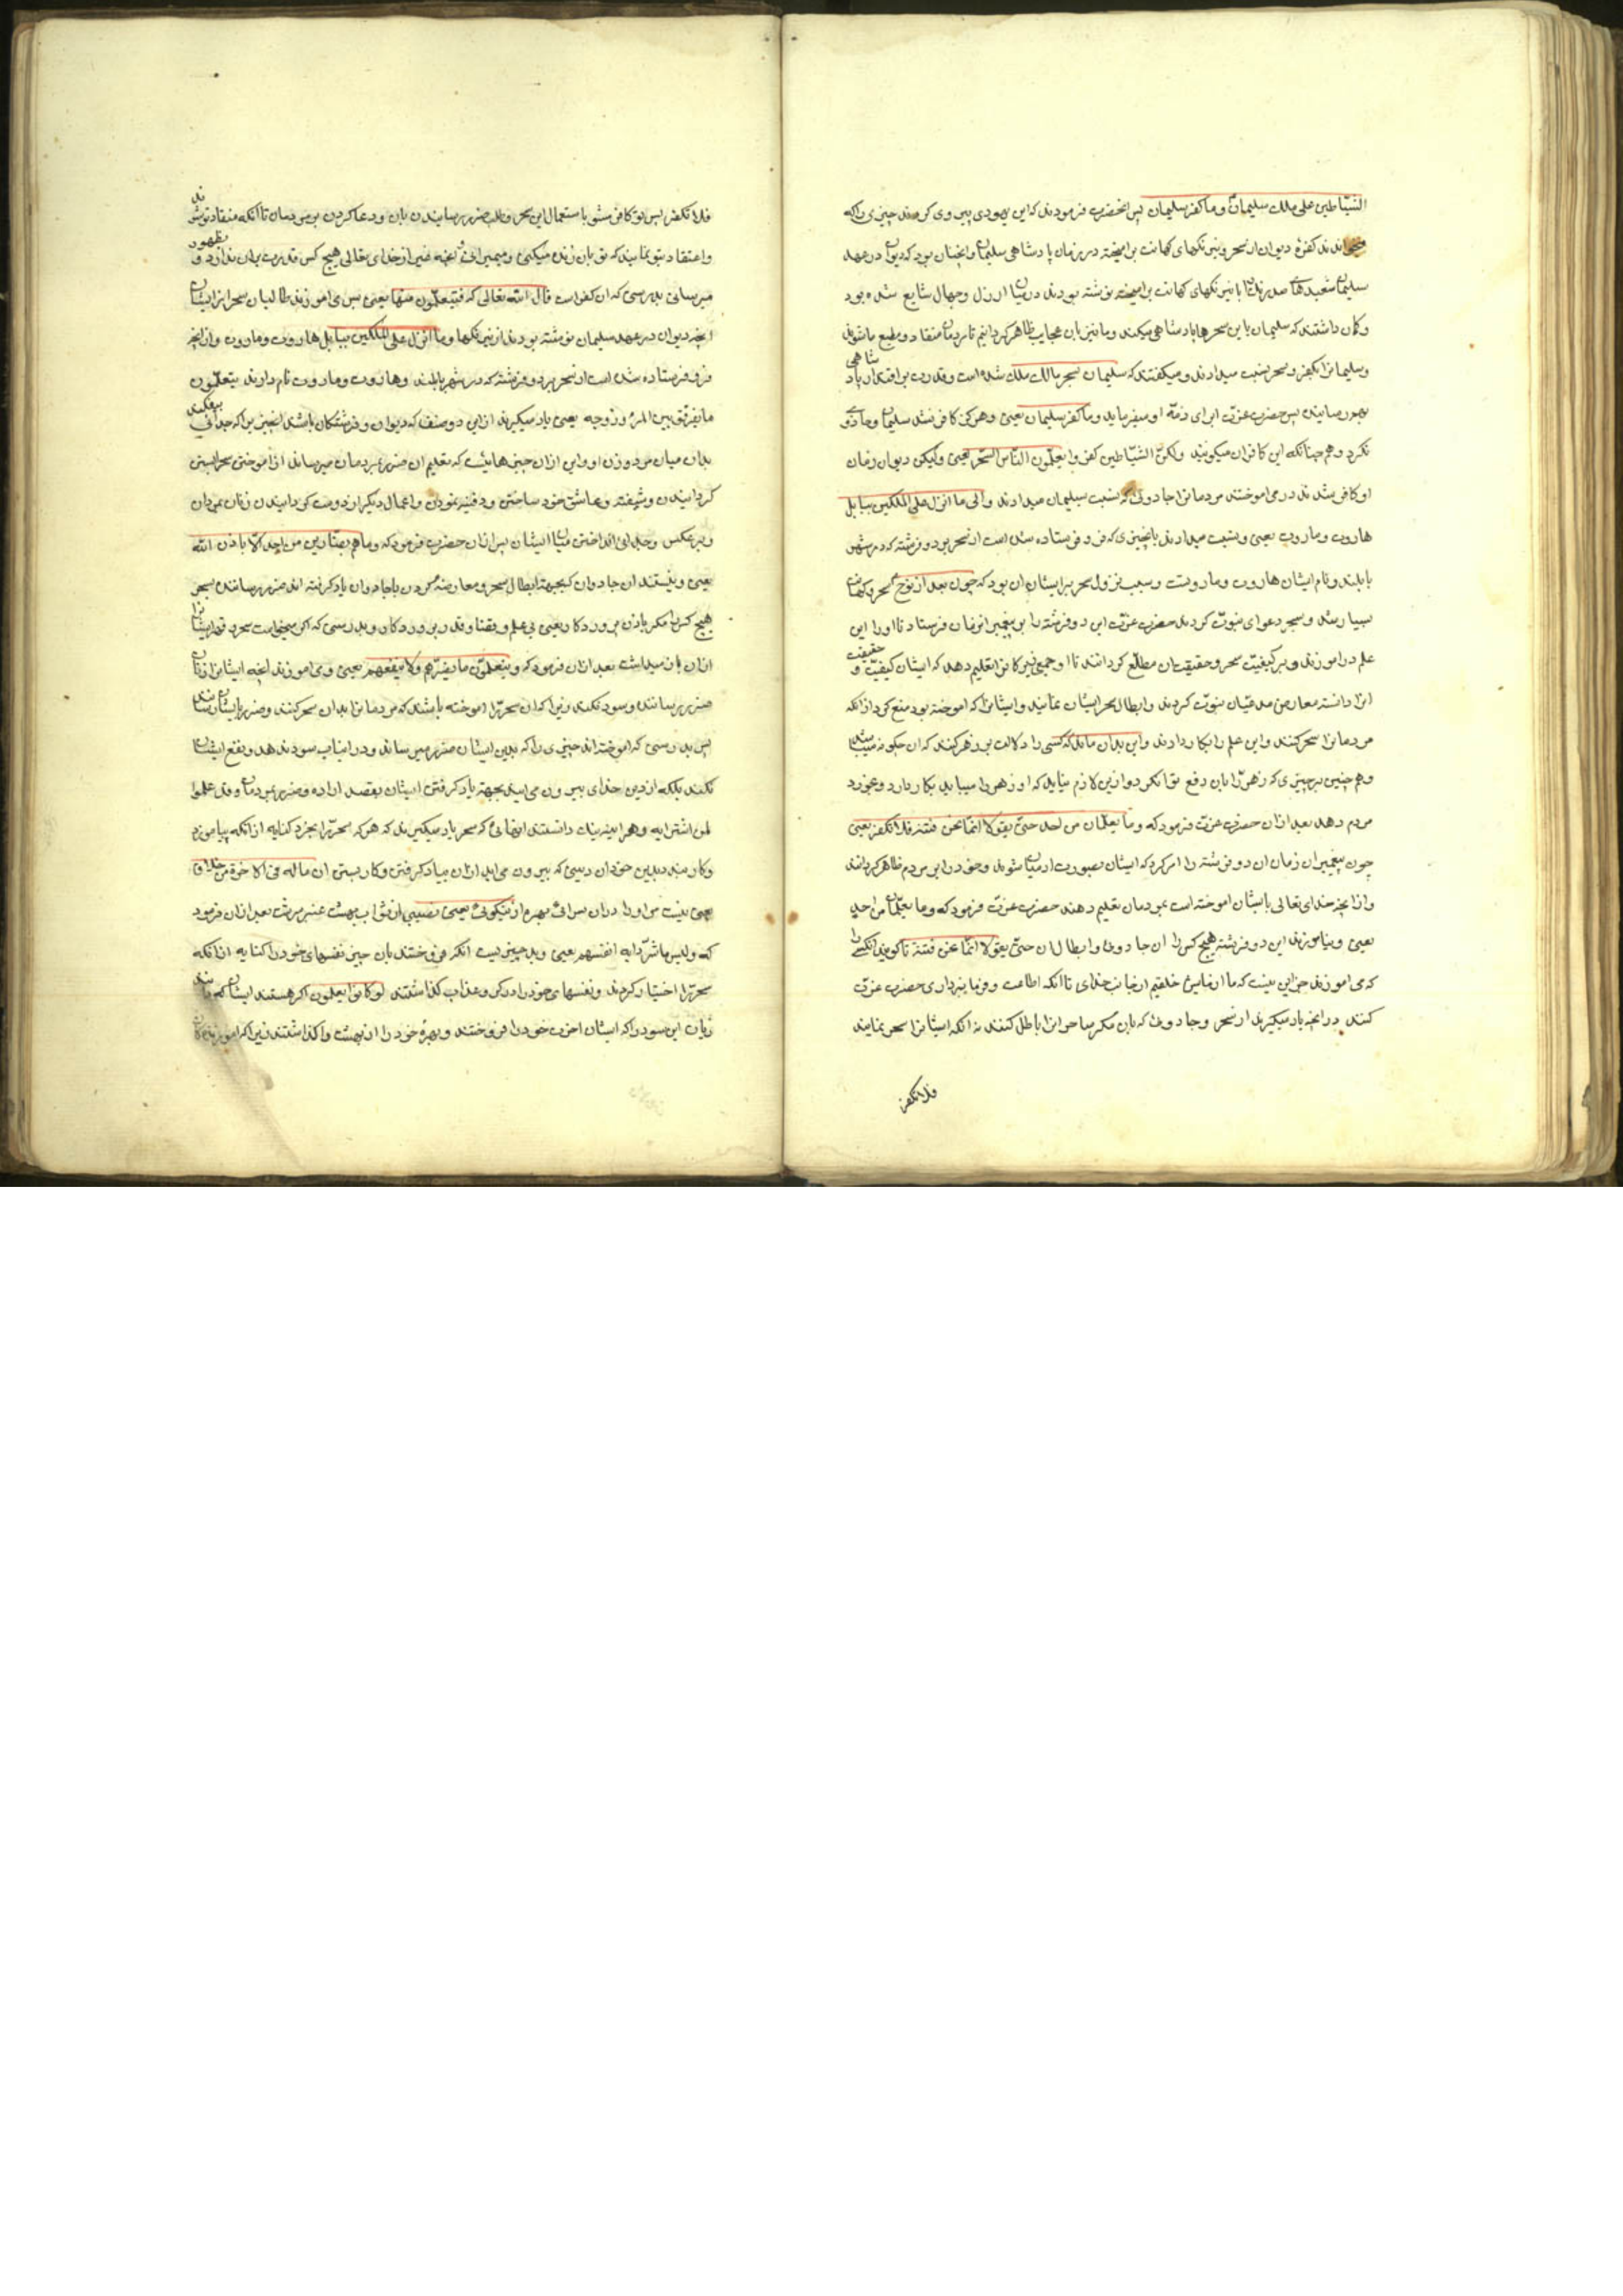 الشیاطین علی ملک سلیمان وما کفر سلیمان پس انحضرت فرمودند که این یهودی پیروی کردند چیزی را که
میخواندند کفرهٔ دیوان از سحر و نیرنگهای کهانت برامیخته در زمان پادشاهی سلیمان و انچنان بود که دیوان در عهد
سلیمان شعبدهای صد رنگ با نیرنگهای کهانت برامیخته نوشته بودند در میان ارذل و جهال شایع شده بود
و کمان داشتند که سلیمان باین سحرها پادشاهی میکند و ما نیز بان عجایب ظاهر کردانیم تا مردمان منقاد و مطیع ما شوند
و سلیمانرا بکفر و سحر نسبت میدادند و میکفتند که سلیمان بسحر مالک ملک شده است و قدرت بر افتدار پادشاهی
بهم رسانیده پس حضرت عزت ابرای ذمّه او میفرماید وما کفر سلیمان یعنی و هرکز کافر نشد سلیمان و جادوی
نکرد و هم چنانکه این کافران میکویند ولکنّ الشیاطین کفروا یعلّمون النّاس السّحر یعنی ولیکن دیوان زمان
او کافر شدند در می اموختند مردمانرا جادوی که نسبت بسلیمان میدادند و الی ما انزل علی الملکین ببابل
هاروت وماروت یعنی و نسبت میدادند بانچیزی که فرو فرستاده شده است از سحر بر دو فرشته که در شهر
بابلند و نام ایشان هاروت و ماروتست و سبب نزول سحر بر ایشان ان بود که چون بعد از نوح سحر و کهانت
بسیار شد و سحره دعوای نبوت کردند حضرت عزت این دو فرشته را بر پیغمبر انزمان فرستاد تا او را این
علم در اموزند و بر کیفیت سحر و حقیقت ان مطلع کردانند تا او جمعی نیز کانرا تعلیم دهد که ایشان کیفیت و حقیقت
انرا دانسته معارض مدعیان نبوت کردند و ابطال سحر ایشان نمایند و ایشانرا که اموخته بود منع کرد از انکه
مردمانرا سحر کنند و این علم را بکار دارند و این بدان ماند که کسی را دلالت بر زهر کنند که ان چکونه میباشد
و هم چنین بر چیزی که زهر را بان دفع توانکرد و ازین لازم نیاید که او زهر را میباید بکار دارد و بخورد
مردم دهد بعد ازان حضرت عزت فرمود که وما یعلّمان من احد حتّی یقولا انّما نحن فتنة فلا تکفر یعنی
چون پیغمبر ان زمان ان دو فرشته را امر کرد که ایشان بصورت ادمیان شوند و خود را بر مردم ظاهر کردانند
و از انچه خدای تعالی بایشان اموخته است بمردمان تعلیم دهند حضرت عزت فرمود که وما یعلّمان من احد
یعنی و نیاموزند این دو فرشته هیچ کس را ان جادوی و ابطال ان حتّی یقولا انّما نحن فتنة تا کویند انکس را
که می اموزند جز این نیست که ما ازمایش خلقیم از جانب خدای تا انکه اطاعت و فرمانبرداری حضرت عزت
کنند در انچه یاد میکیرند از سحر و جادوی که بان مکر ساحرانرا باطل کنند نه انکه ایشانرا سحر نمایند
فلا تکفر
فلا تکفر پس تو کافر مشو باستعمال این سحر و طلب ضرر رسانیدن بان و دعا کردن بر مردمان تا انکه منقاد تو شوند
و اعتقاد بتو نمایند که تو بان زنده میکنی و میمیرانی و انچه غیر از خدای تعالی هیچ کس قدرت بدان ندارد و بظهور
میرسانی بدرستی که ان کفر است قال الله تعالی که فیتعلّمون منهما یعنی پس می اموزند طالبان سحر از ایشان
انچه دیوان در عهد سلیمان نوشته بودند از نیرنگها وما انزل علی الملکین ببابل هاروت وماروت و از انچه
فرو فرستاده شده است از سحر بر دو فرشته که در شهر بابلند و هاروت و ماروت نام دارند یتعلّمون
ما یفرّق بین المرء وزوجه یعنی یاد میکیرند از این دو صنف که دیوان و فرشتکان باشند انچیزیرا که جدائی بیفکند
بدان میان مرد و زن او و این ازان چیزهائیست که بتعلیم ان ضرر بمردمان میرساند از اموختن سحر بستن
کردانیدن و شیفته و عاشق خود ساختن و دفینه نمودن و اعمال دیکر از دوست کردانیدن زنان بمردان
و بر عکس و جدائی انداختن میان ایشان پس ازان حضرت فرمود که وما هم بضارّین من احد الّا باذن الله
یعنی و نیستند ان جادوان که بجهة ابطال سحر و معارضه کردن با جادوان یاد کرفته اند ضرر رسانند بسحر
هیچ کس را مکر باذن پروردکار یعنی بی علم و بقضا و قدر پروردکار و بدرستی که اکر میخواست بجبر و قهر ایشانرا
ازان باز میداشت بعد ازان فرمود که ویتعلّمون ما یضرّهم ولا ینفعهم یعنی و می اموزند انچه ایشانرا زیان
ضرر رسانند و سود نکند زیرا که ان سحر را اموخته باشند که مردمانرا بدان سحر کنند و ضرر بایشان رسانند
پس بدرستی که اموخته اند چیزی را که بدین ایشان ضرر میرساند و در انباب سود ندهد و نفع ایشان
نکند بلکه از دین خدای بیرون می ایند بجهة یاد کرفتن ایشان بقصد اراده و ضرر بمردمان ولقد علموا
لمن اشتراه و هراینه نیک دانستند انهائی که سحر یاد میکیرند که هر که سحر را بخرد کنایه از انکه بیاموزد
و کار بندد بدین خود ان دینی که بیرون می اید ازان بیاد کرفتن و کار بستن ان ما له فی الاخرة من خلاق
یعنی نیست مر او را دران سرای بهره از نیکوئی یعنی نصیبی از ثواب بهشت عنبر سرشت بعد ازان فرمود
که ولبئس ما شروا به انفسهم یعنی و بد چیزیست انکه فروختند بان چیز نفسهای خود را کنایه از انکه
سحر را اختیار کردند و نفسهای خود را در کرو عذاب کذاشتند لو کانوا یعلمون اکر هستند ایشان که بدانند
زیان این سود را که ایشان اخرت خود را فروختند و بهرهٔ خود را از بهشت واکذاشتند زیرا که اموزندکان